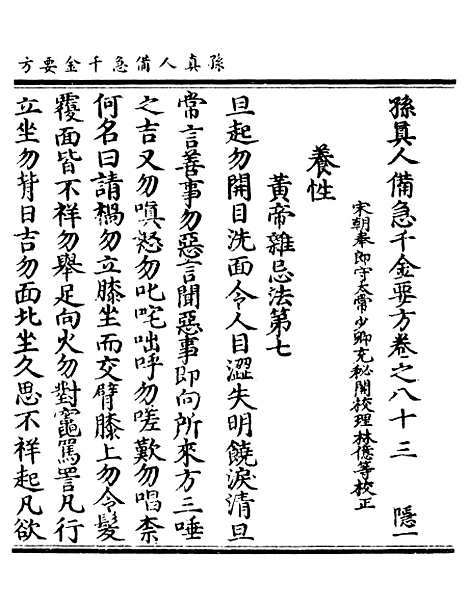 孫真人備急千金要方
孫真人備急千金要方卷之八十三　隱一
宋朝奉郎守太常少卿充祕閣校理林億等校正
養性
黃帝雜忌法第七
旦起勿開目洗面令人目澀失明饒淚清旦
常言善事勿惡言聞惡事即向所來方三唾
之吉又勿嗔怒勿叱咤咄呼勿嗟歎勿唱柰
何名曰請禍勿立膝坐而交臂膝上勿令髮
覆面皆不祥勿舉足向火勿對竈罵詈凡行
立坐勿背日吉勿面北坐久思不祥起凡欲